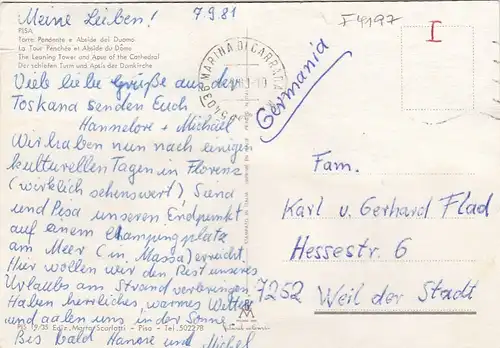 Meine Lieben! 7.9.81
F4197
I
PISA
Torre Pendente e Abside del Duomo
La Tour Penchée et Abside du Dôme
The Leaning Tower and Apse of the Cathedral
Der schiefen Turm und Apsis des Domkirche
54036 MARINA DI CARRARA
Germania
Viele liebe Grüße aus der
Toskana senden Euch
Hannelore + Michael
Wir haben nun nach einigen
kulturellen Tagen in Florenz
(wirklich sehenswert) Siena
und Pisa unseren Endpunkt
auf einem Campingplatz
am Meer (in Massa) erreicht.
Hier wollen wir den Rest unseres
Urlaubs am Strand verbringen.
Haben herrliches, warmes Wetter
und aalen uns in der Sonne.
PIS 19/35 Ediz. Marta Scarlatti - Pisa - Tel. 502278
Bis bald Hanore und Michel
Fam.
Karl u. Gerhard Flad
Hessestr. 6
7252 Weil der Stadt